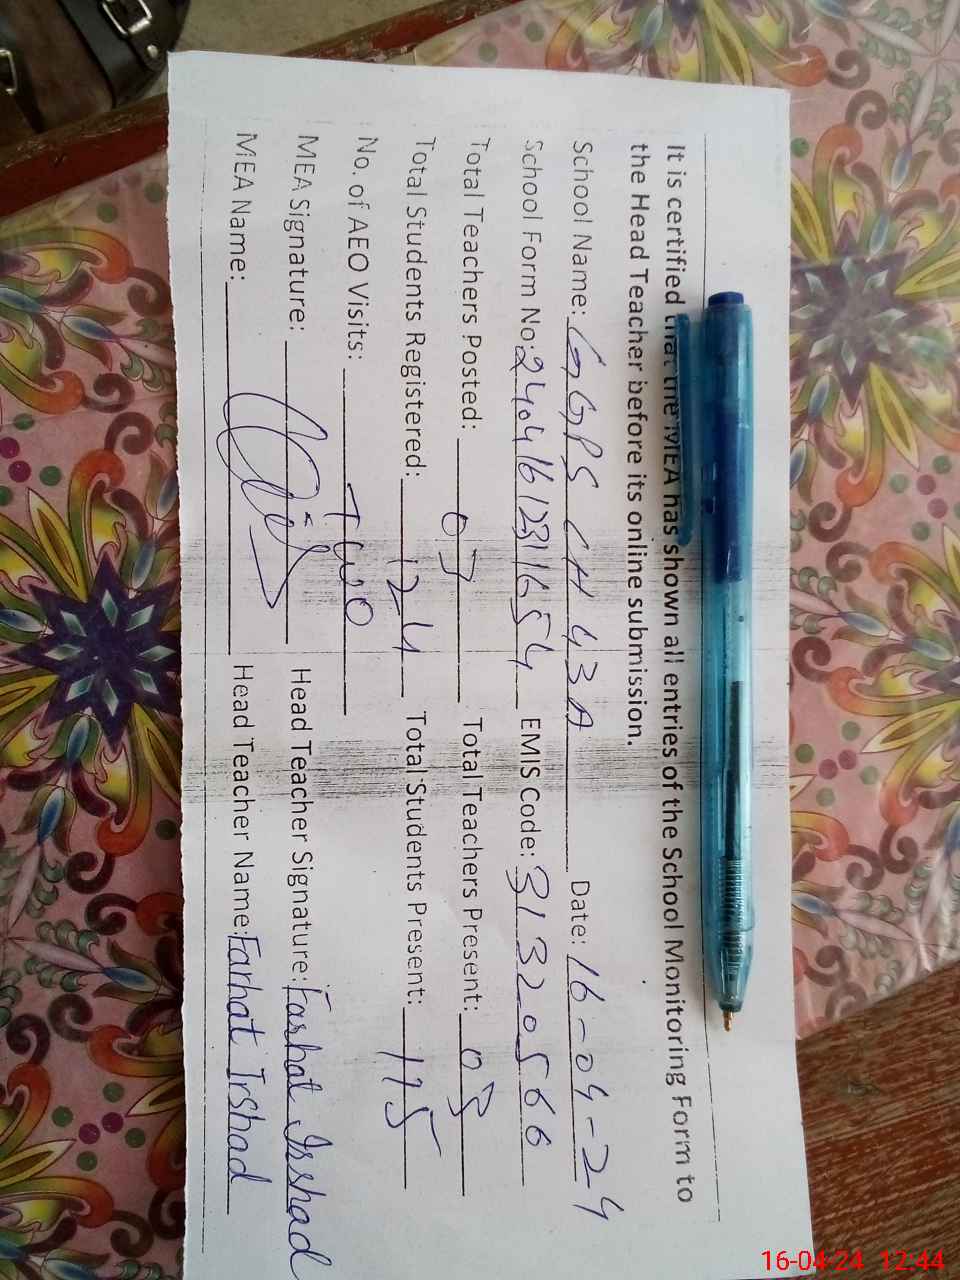 It is certified that the MEA has shown all entries of the School Monitoring Form to
the Head Teacher before its online submission.
School Name: GGPS CH 43 A Date: 16-04-24
School Form No: 2404161231654 EMIS Code: 31320566
Total Teachers Posted: 03 Total Teachers Present: 03
Total Students Registered: 124 Total Students Present: 115
No. of AEO Visits: Two
MEA Signature: Head Teacher Signature: Farhat Irshad
MEA Name: Head Teacher Name: Farhat Irshad
16-04-24 12:44